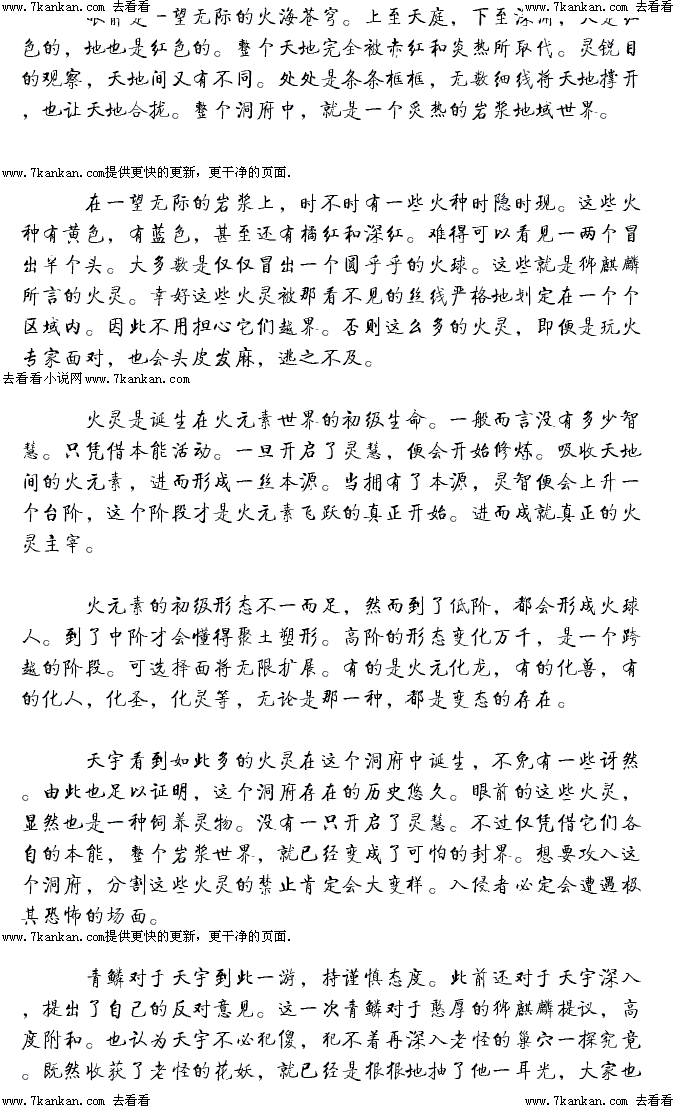 www.7kankan.com 去看看 www.7kankan.com 去看看
眼前是一望无际的火海苍穹。上至天庭，下至深渊，天是红
色的，地也是红色的。整个天地完全被赤红和炎热所取代。灵锐目
的观察，天地间又有不同。处处是条条框框，无数细线将天地撑开
，也让天地合拢。整个洞府中，就是一个炙热的岩浆地域世界。
www.7kankan.com提供更快的更新，更干净的页面.
在一望无际的岩浆上，时不时有一些火种时隐时现。这些火
种有黄色，有蓝色，甚至还有橘红和深红。难得可以看见一两个冒
出半个头。大多数是仅仅冒出一个圆乎乎的火球。这些就是狮麒麟
所言的火灵。幸好这些火灵被那看不见的丝线严格地划定在一个个
区域内。因此不用担心它们越界。否则这么多的火灵，即便是玩火
专家面对，也会头皮发麻，逃之不及。
去看看小说网www.7kankan.com
火灵是诞生在火元素世界的初级生命。一般而言没有多少智
慧。只凭借本能活动。一旦开启了灵慧，便会开始修炼。吸收天地
间的火元素，进而形成一丝本源。当拥有了本源，灵智便会上升一
个台阶，这个阶段才是火元素飞跃的真正开始。进而成就真正的火
灵主宰。
火元素的初级形态不一而足，然而到了低阶，都会形成火球
人。到了中阶才会懂得聚土塑形。高阶的形态变化万千，是一个跨
越的阶段。可选择面将无限扩展。有的是火元化龙，有的化兽，有
的化人，化圣，化灵等，无论是那一种，都是变态的存在。
天宇看到如此多的火灵在这个洞府中诞生，不免有一些讶然
。由此也足以证明，这个洞府存在的历史悠久。眼前的这些火灵，
显然也是一种饲养灵物。没有一只开启了灵慧。不过仅凭借它们各
自的本能，整个岩浆世界，就已经变成了可怕的封界。想要攻入这
个洞府，分割这些火灵的禁止肯定会大变样。入侵者必定会遭遇极
其恐怖的场面。
www.7kankan.com提供更快的更新，更干净的页面.
青鳞对于天宇到此一游，持谨慎态度。此前还对于天宇深入
，提出了自己的反对意见。这一次青鳞对于憨厚的狮麒麟提议，高
度附和。也认为天宇不必犯傻，犯不着再深入老怪的巢穴一探究竟
。既然收获了老怪的花妖，就已经是狠狠地抽了他一耳光，大家也
www.7kankan.com 去看看 www.7kankan.com 去看看